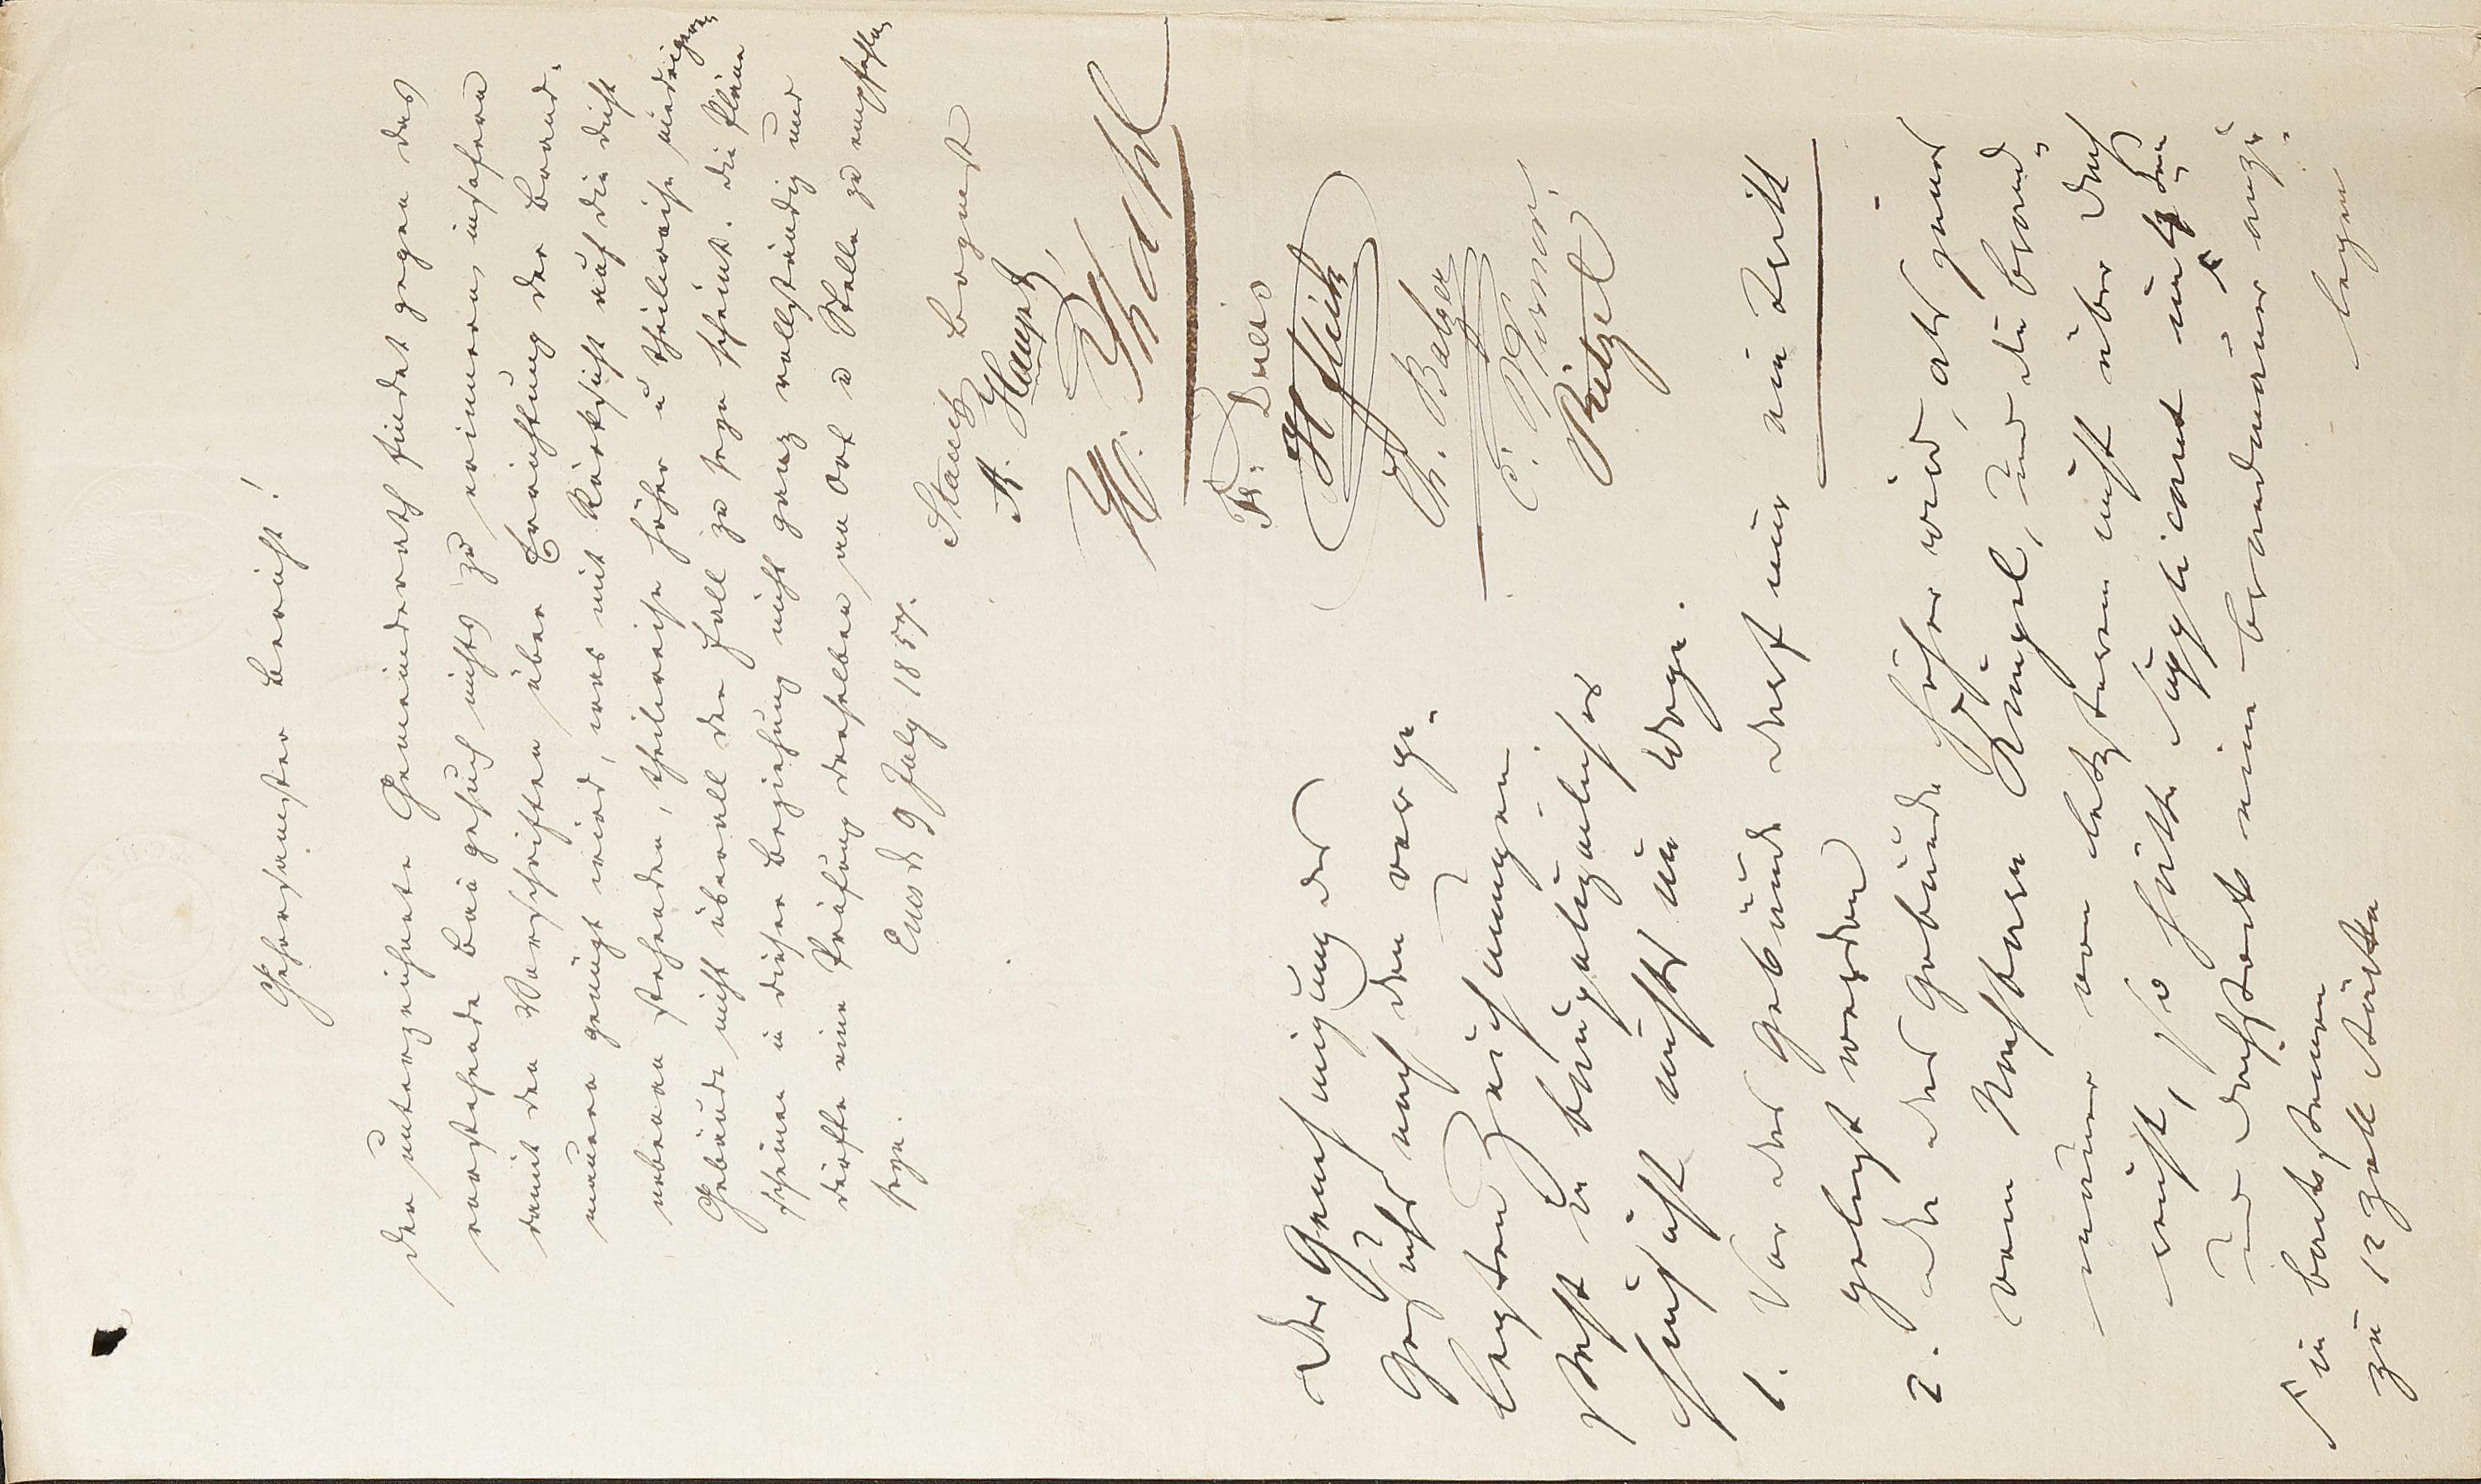 Gehorsamster Bericht!
Der unterzeichnete Gemeinderath findet gegen das
vorstehende Baugesuch nichts zu erinnern, insofern
damit den Vorschriften über Errichtung der Brand-
mauern genügt wird, was mit Rücksicht auf die dicht
nebenan stehenden, theilweise höher u theilweise niedrigern
Gebäude nicht überall der Fall zu seyn scheint. Die Pläne
scheinen in dieser Beziehung nicht ganz vollständig und
dürfte eine Prüfung derselben an Ort u Stelle zu empfehlen
seyn.
Ems d 9 July 1857.
Bogner
A. Haupt
H.
Fr.
H
Ch. Balzer
C.
Ritzel
Der Genehmigung des
Gesuchs nach den vorge-
legten Zeichnungen
steht in baupolizeilicher
Hinsicht nichts im Wege.
1. Vor das Gebäude darf nur ein Tritt
gelegt werden
2. Da das Gebäude höher wird, als jenes
vom Nachbarn und die Brand-
mauer von letzterem nicht über Dach
reicht, so hätte Supplicant
und Dachstock eine Brandmauer anzu-
legen
in Backsteinen
zu 12 Zoll Stärke